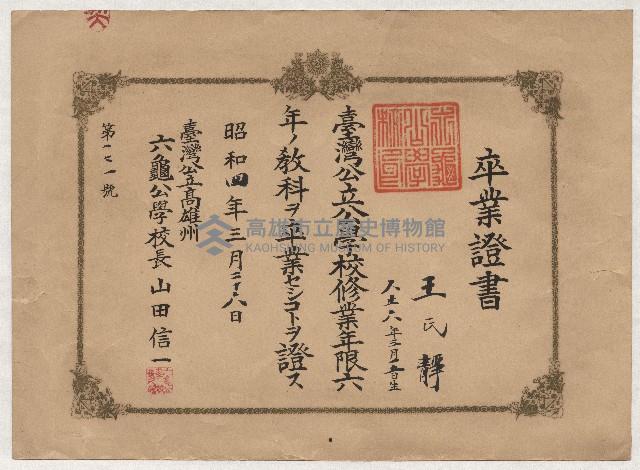 卒業證書
王氏靜
大正六年三月五日生
臺灣公立公學校修業年限六
年ノ敎科ヲ卒業セシコトヲ證ス
昭和四年三月二十八日
臺灣公立高雄州
六龜公學校長 山田信一
第一七一號
高雄市立歷史博物館
KAOHSIUNG MUSEUM OF HISTORY